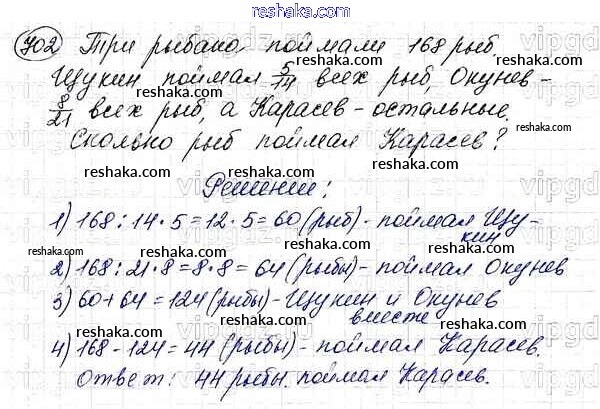 reshaka.com
702 Три рыбака поймали 168 рыб.
reshaka.com
Щукин поймал 5/14 всех рыб, Окунев -
reshaka.com
8/21 всех рыб, а Карасев - остальные.
reshaka.com
Сколько рыб поймал Карасев?
reshaka.com reshaka.com
Решение:
reshaka.com reshaka.com
1) 168 : 14 · 5 = 12 · 5 = 60 (рыб) - поймал Щу-
кин
reshaka.com reshaka.com reshaka.com
2) 168 : 21 · 8 = 8 · 8 = 64 (рыбы) - поймал Окунев
reshaka.com
3) 60 + 64 = 124 (рыбы) - Щукин и Окунев
вместе
reshaka.com reshaka.com
4) 168 - 124 = 44 (рыбы) - поймал Карасев.
reshaka.com reshaka.com
Ответ: 44 рыбы поймал Карасев.
reshaka.com
vipgd